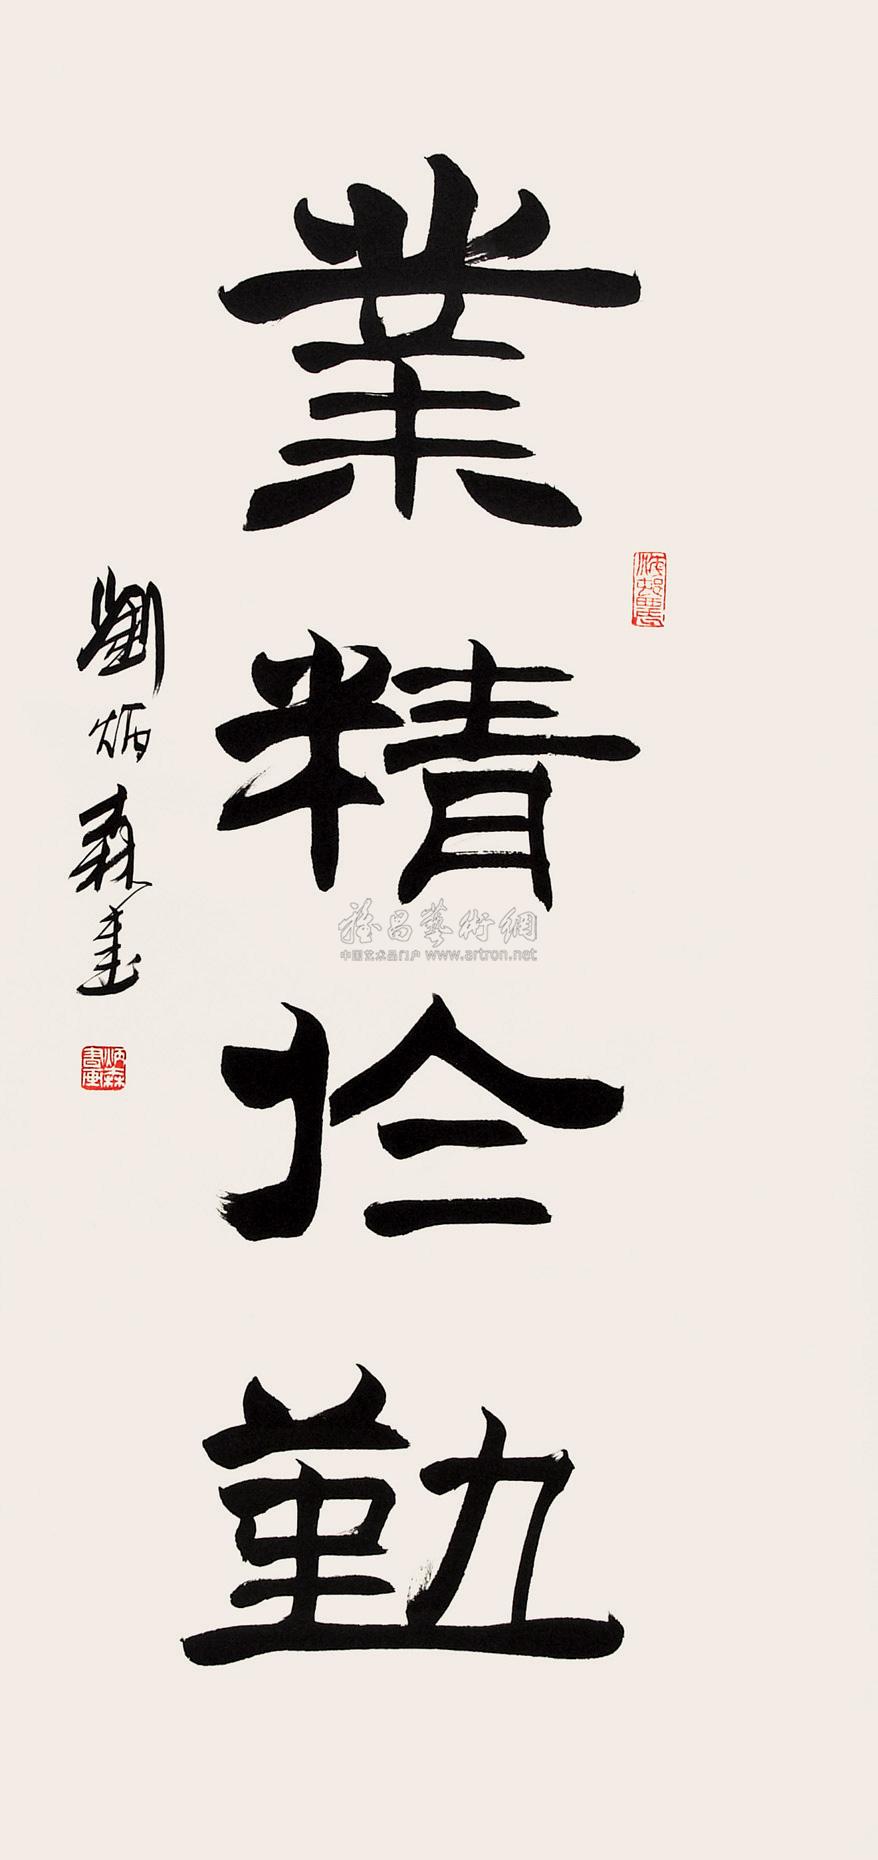 業精扵勤
劉炳森書
炳森書畫
雅昌藝術網
中国艺术品门户 www.artron.net